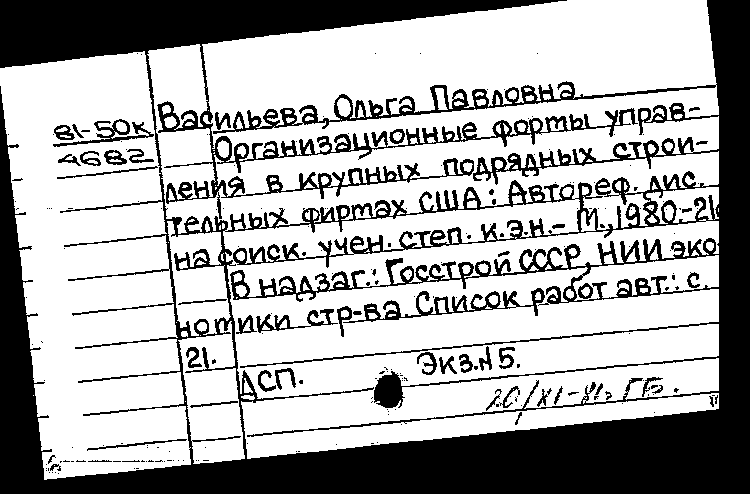 81-50к
4682
Васильева, Ольга Павловна.
Организационные формы управ-
ления в крупных подрядных строи-
тельных фирмах США: Автореф. дис.
на соиск. учен. степ. к.э.н.- М., 1980.-21с
В надзаг.: Госстрой СССР, НИИ эко-
номики стр-ва. Список работ авт.: с.
21.
ДСП. Экз.№5.
20/XI-81г. ГБ.